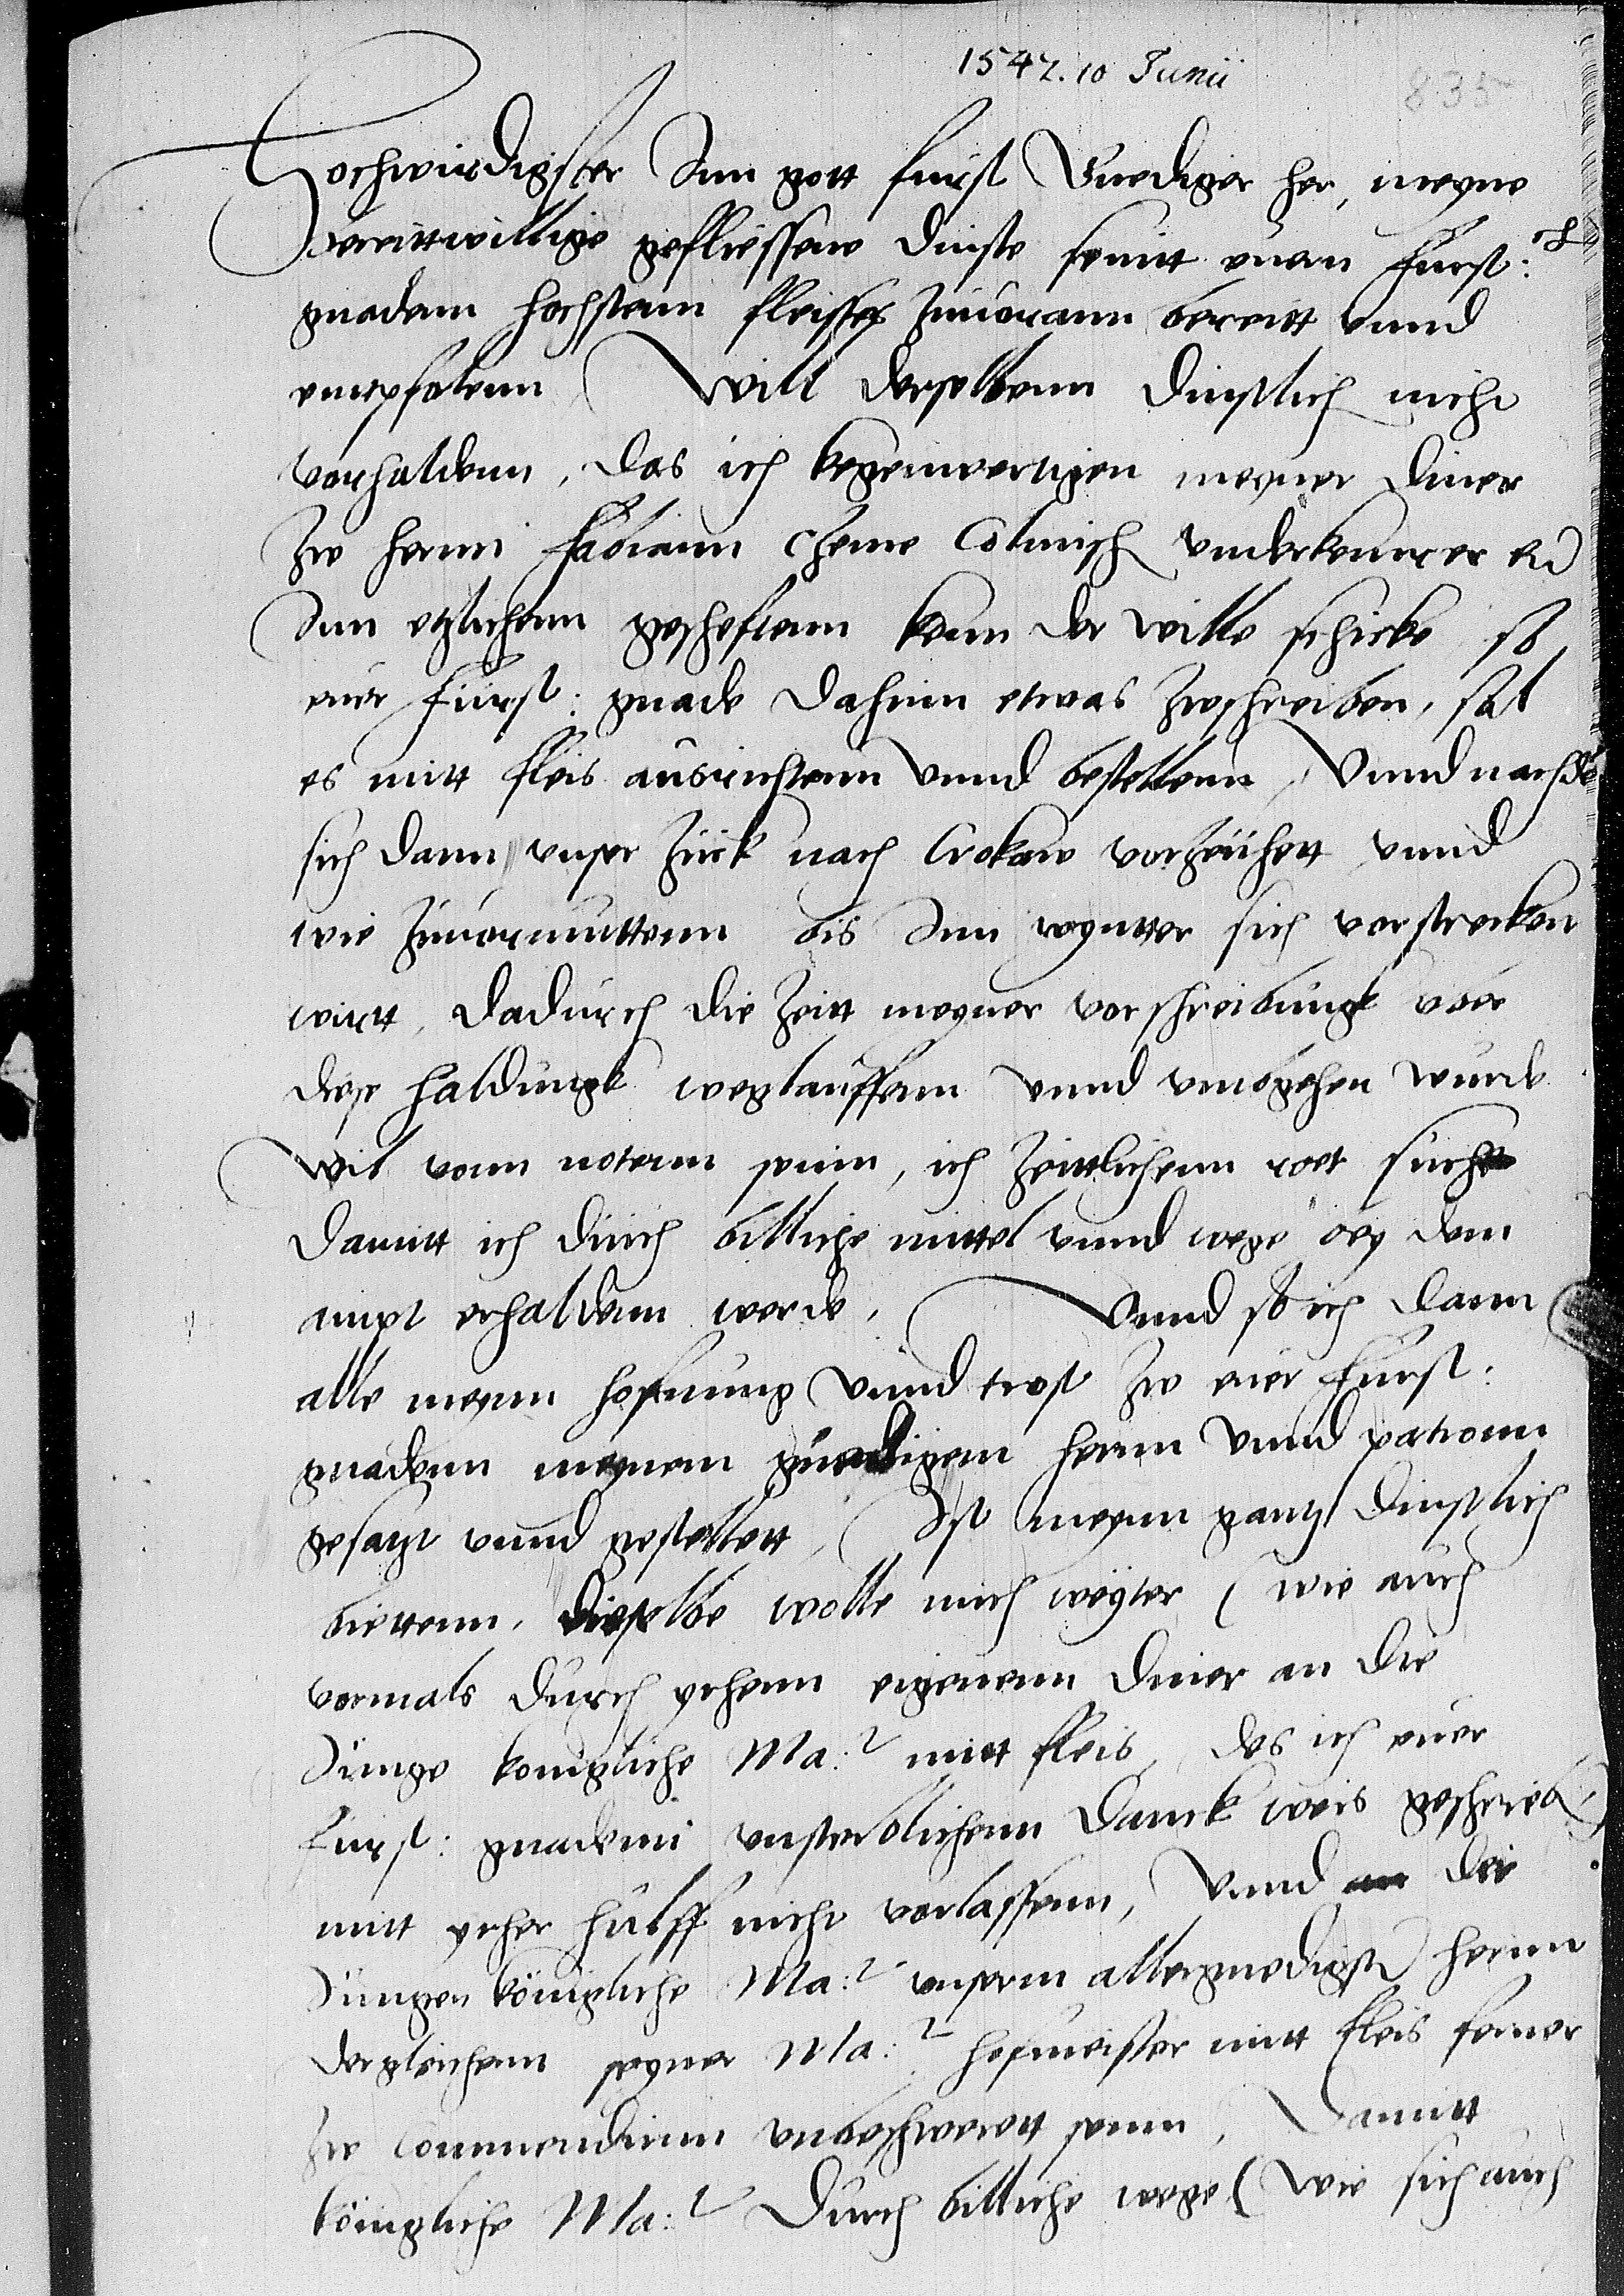 1547. 10 Junii
835
Hochwirdigster Inn gott furst Gnediger her, meyne
bereittwillige gefliessene dinste seintt euern furst:
gnadenn hochstenn fleisses zuuorann bereitt vnnd
empfolenn Will derselbenn dinstlich nicht
vorhaldenn, das ich kegenwertigen meyner diner
zw hernn fabiann Czeme Colmisch vnderkemerer
Inn etzlichenn gescheftenn kenn der wille schicke so
eur furst: gnade dahinn etwas zwschreiben, sal
es mitt fleis ausrichtenn vnnd bestellenn, Vnnd nachde
sich dann vnser zuck nach Crokaw vorzeuhett vnnd
wie zuuormuttenn bis Inn wyntter sich vorstrecken
wirtt, dadurch die zeitt meyner vorschreibungk vber
diese haldungk weglauffenn vnnd vmbgehen wurde
Wil vonn notenn seinn, ich zeittlichenn rot suche
damitt ich durch billiche mittel vnnd wege bey dem
ampt erhaldenn werde, Vnnd so ich dann
alle meynn hoffnung vnnd trost zw euer furst:
gnadenn meynem gnedigem hernn vnnd patronn
gesatzt vnnd gestellett, Ist meynn gantz dinstlich
biettenn, dieselbe wolle mich weyter (wie auch
vormals durch yrhenn eigenenn diner an die
Junge konigliche Ma:t mitt fleis, des ich euer
furst: gnadenn vnsterblichenn danck weis geschrieb)
mitt yrher hulff nicht vorlassenn, Vnnd die
Jungen königliche Ma:t vnserm allergnedigste hernn
dergleichenn seyner Ma:t hofmeister mitt fleis ferner
zw commendirnn vnbeschwerett seinn, Damitt
königliche Ma:t durch billiche wege (wie sich auch